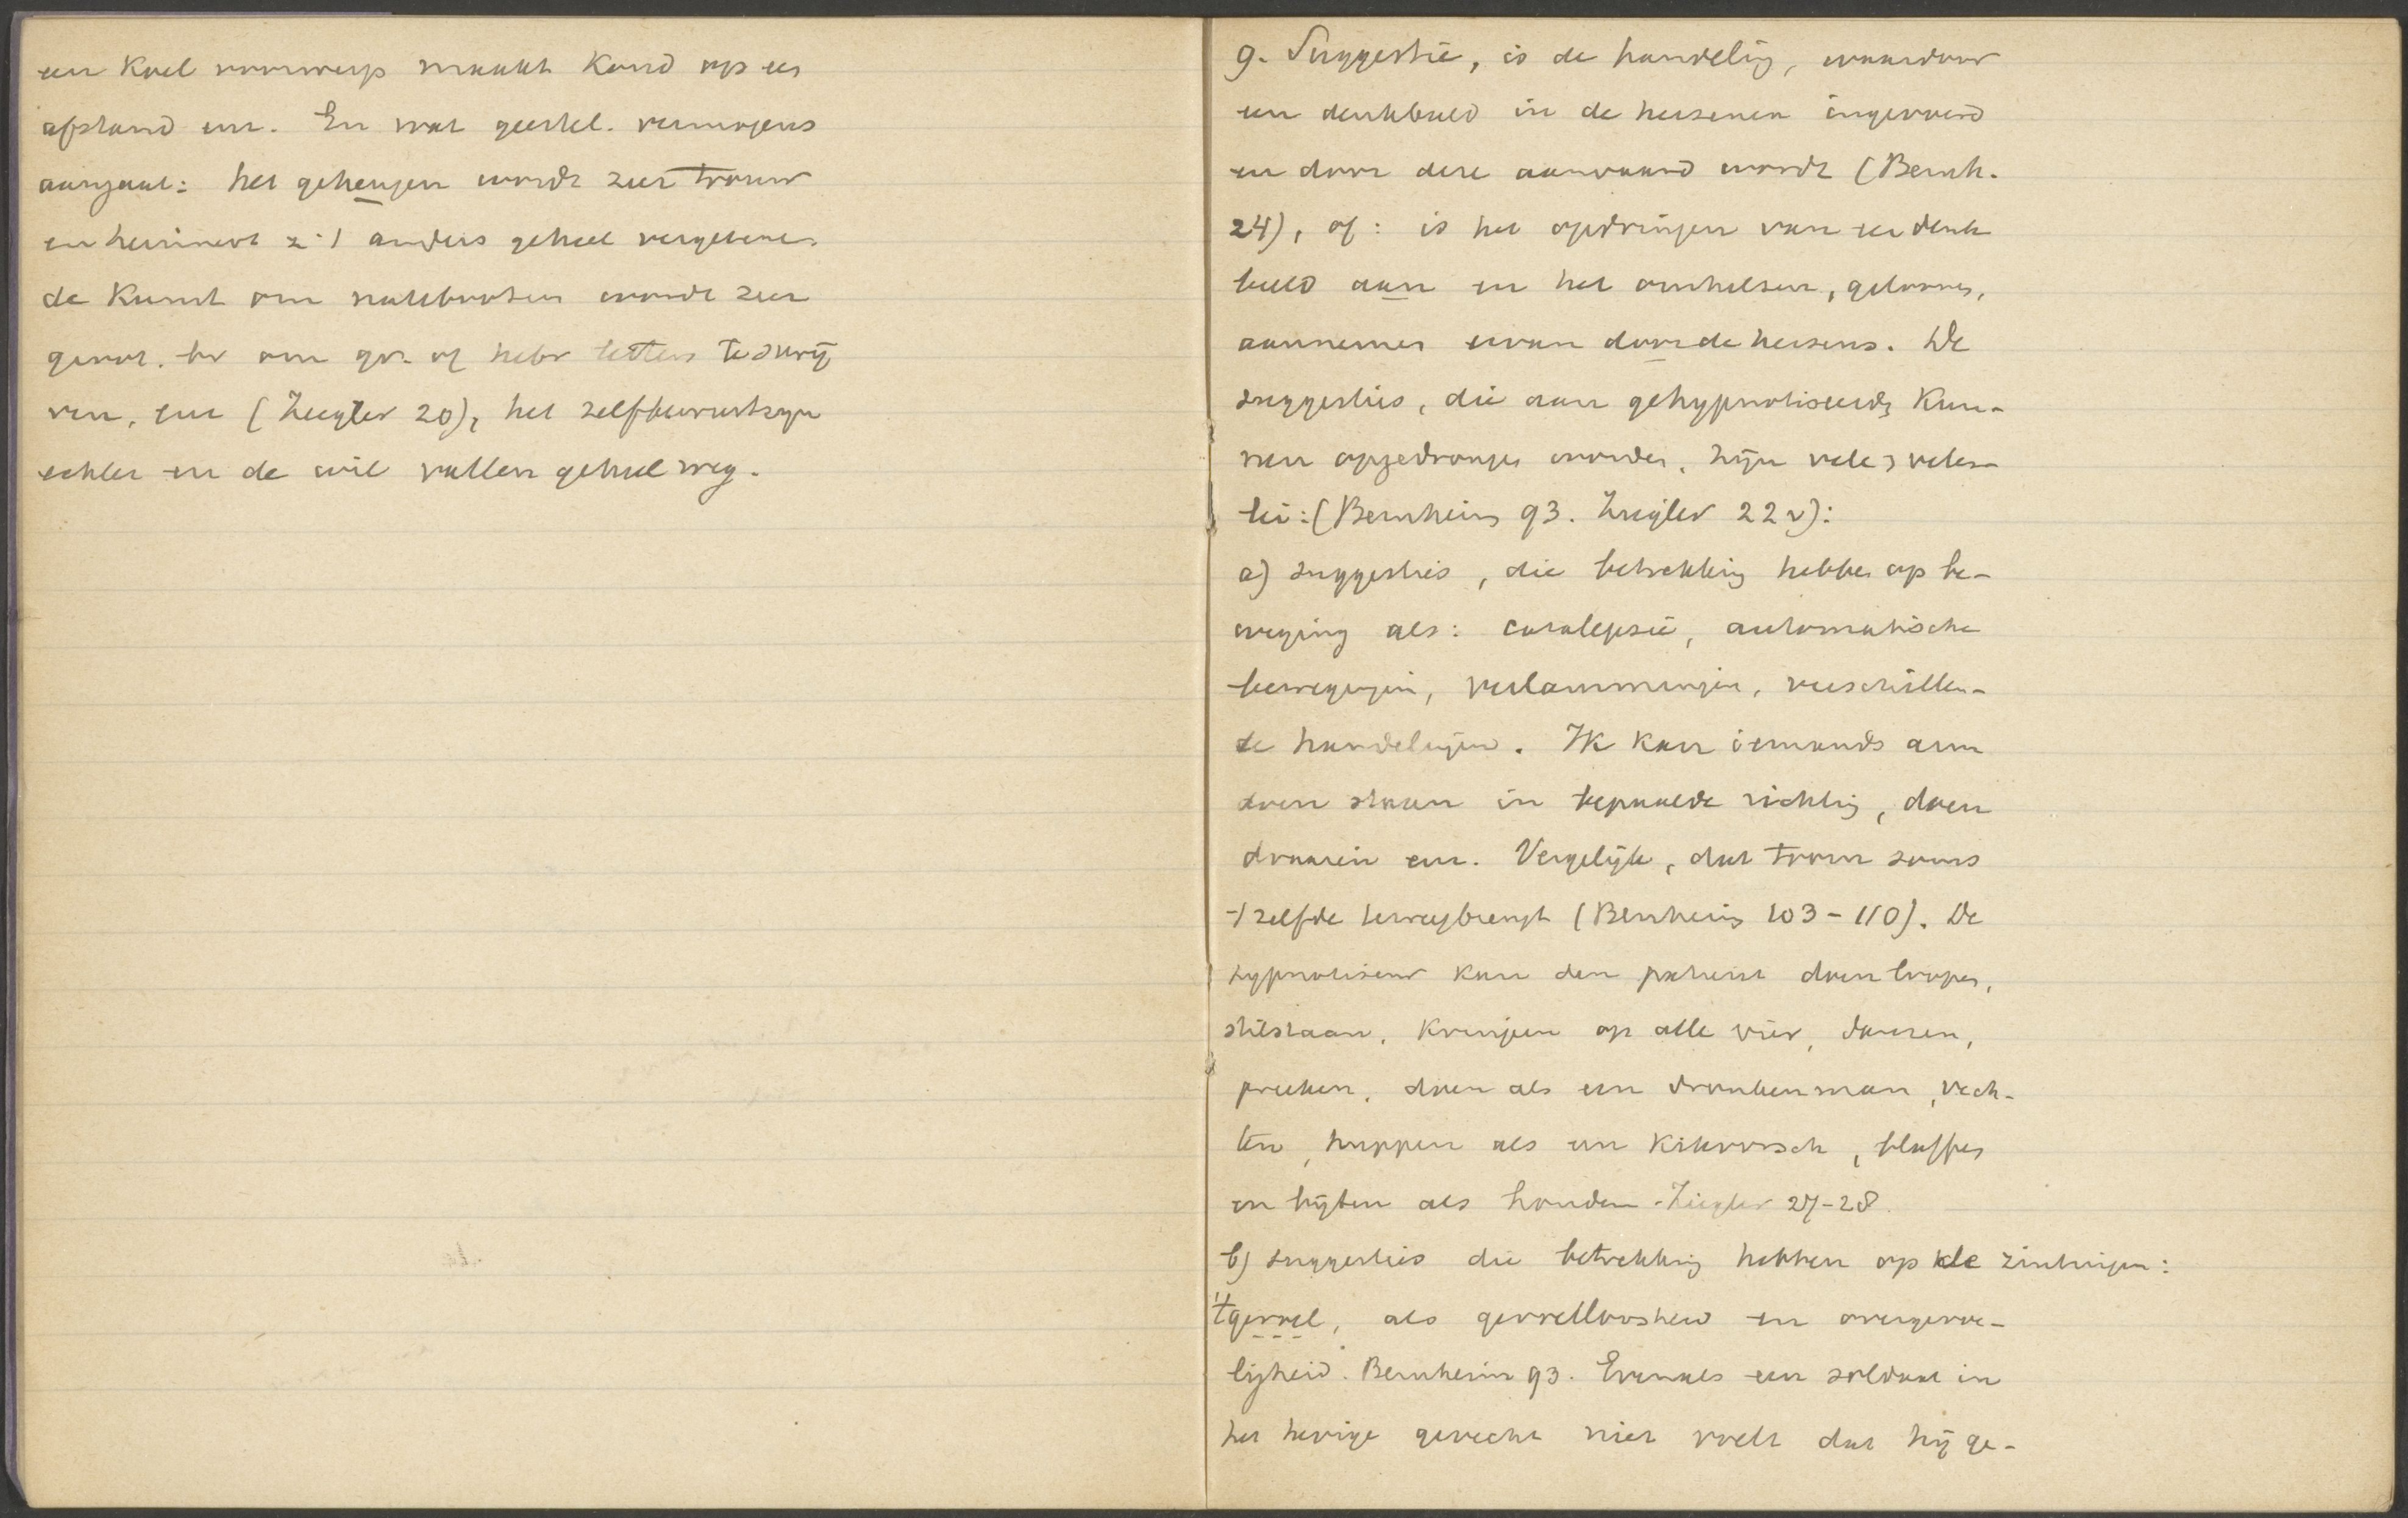 een koel voorwerp maakt koud op een
afstand enz. En wat geestel. vermogens
aangaat: het geheugen wordt zeer trouw
en herinnert z. 't anders geheel vergetene.
de kunst om nabootsen wordt zeer
groot. bv om gr. of hebr letters te schrij
ven, enz (Ziegler 20), het zelfbewustzijn
echter en de wil vallen geheel weg.
g. Suggestie, is de handeling, waardoor
een denkbeeld in de hersenen ingevoerd
en door deze aanvaard wordt (Bernh.
24), of: is het opdringen van een denk
beeld aan en het omhelsen, gelooven,
aannemen ervan door de hersens. De
suggesties, die aan gehypnotiseerdn kun-
nen opgedrongen worden, zijn vele en veler-
lei: (Bernheim 93. Ziegler 22 v):
a) suggesties, die betrekking hebben op be-
weging als: catalepsie, automatische
bewegingen, verlammingen, verschillen-
de handelingen. Ik kan iemands arm
doen staan in bepaalde richting, doen
draaien enz. Vergelijk, dat troum soms
't zelfde teweegbrengt (Bernheim 103-110). De
hypnotiseur kan den patient doen loopen,
stilstaan, kruipen op alle vier, dansen,
preeken, doen als een dronkenman, vech-
ten, huppen als een kikvorsch, blaffen
en bijten als honden. Ziegler 27-28.
b) suggesties die betrekking hebben op de zintuigen:
't gevoel, als gevoelloosheid en overgevoe-
ligheid. Bernheim 93. Evenals een soldaat in
het hevige gevecht niet voelt dat hij ge-